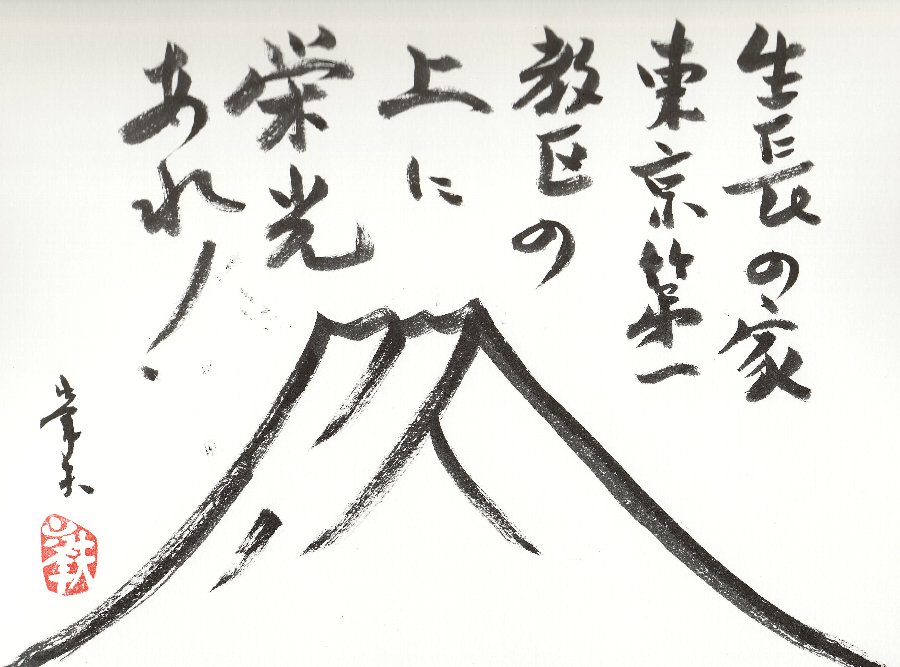 生長の家
東京第一
教区の
上に
栄光
あれ！